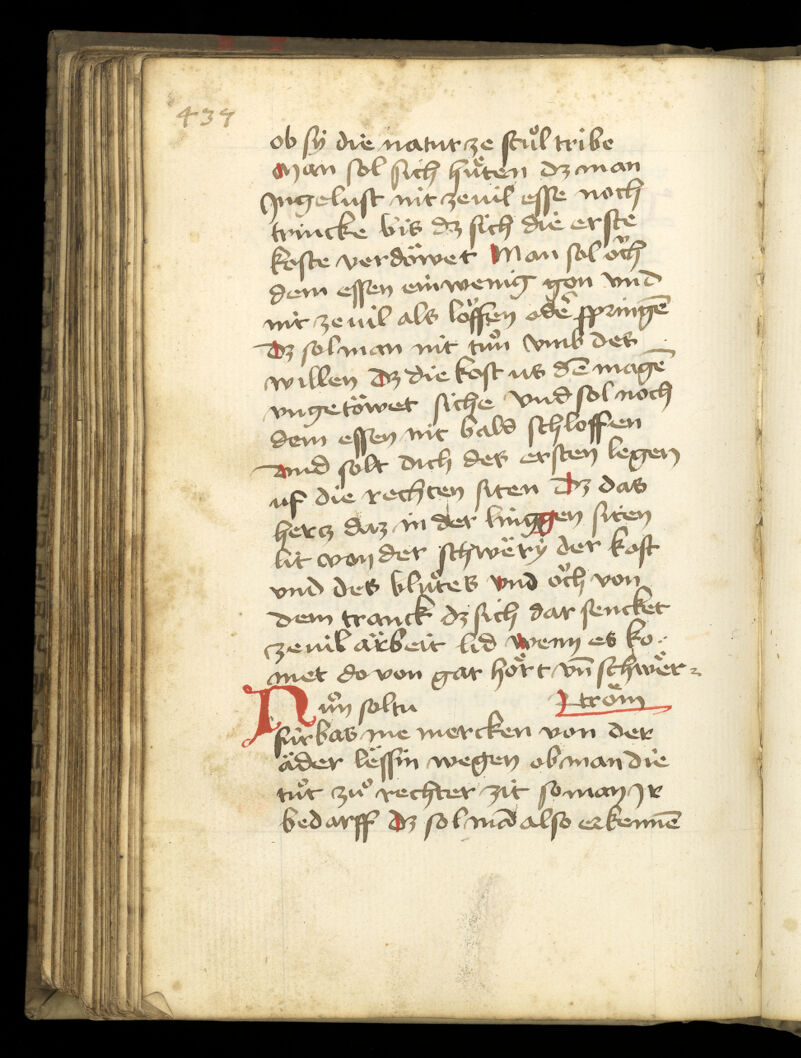 437
ob sÿ die natur ze stuͦl tribe
Man sol sich huͤten dz man
Jngelust nit zeuil esse noch
trincke bis dz sich die erste
koste verdoͤwet Man sol oͮch
dem essen ein wenig gon vnd
nit zeuil als loͮffen oder springē
Dz sol man nit tuͦn vmb des
willen Dz die kost us dē magē
vngetoͤwet siche vnd sol noch
dem essen nit bald schloffen
vnd solt dich des ersten legen
uf die rechten siten Dz das
hercz daz in der linggen siten
lit von der schwerÿ der kost
vnd des bluͦtes vnd oͮch von
dem tranck dz sich dar sencket
zeuil aͤrbeit lid wenn es ko⸗
met do von gar hoͤrt vn̄ schwer⸗
troͤm
Nuͦn soltu
fúrbas me mercken von der
aͤder lessin wegen ob man die
tuͦt zuͦ rechter zit so man Jr
bedarff Dz sol mā also erkennē